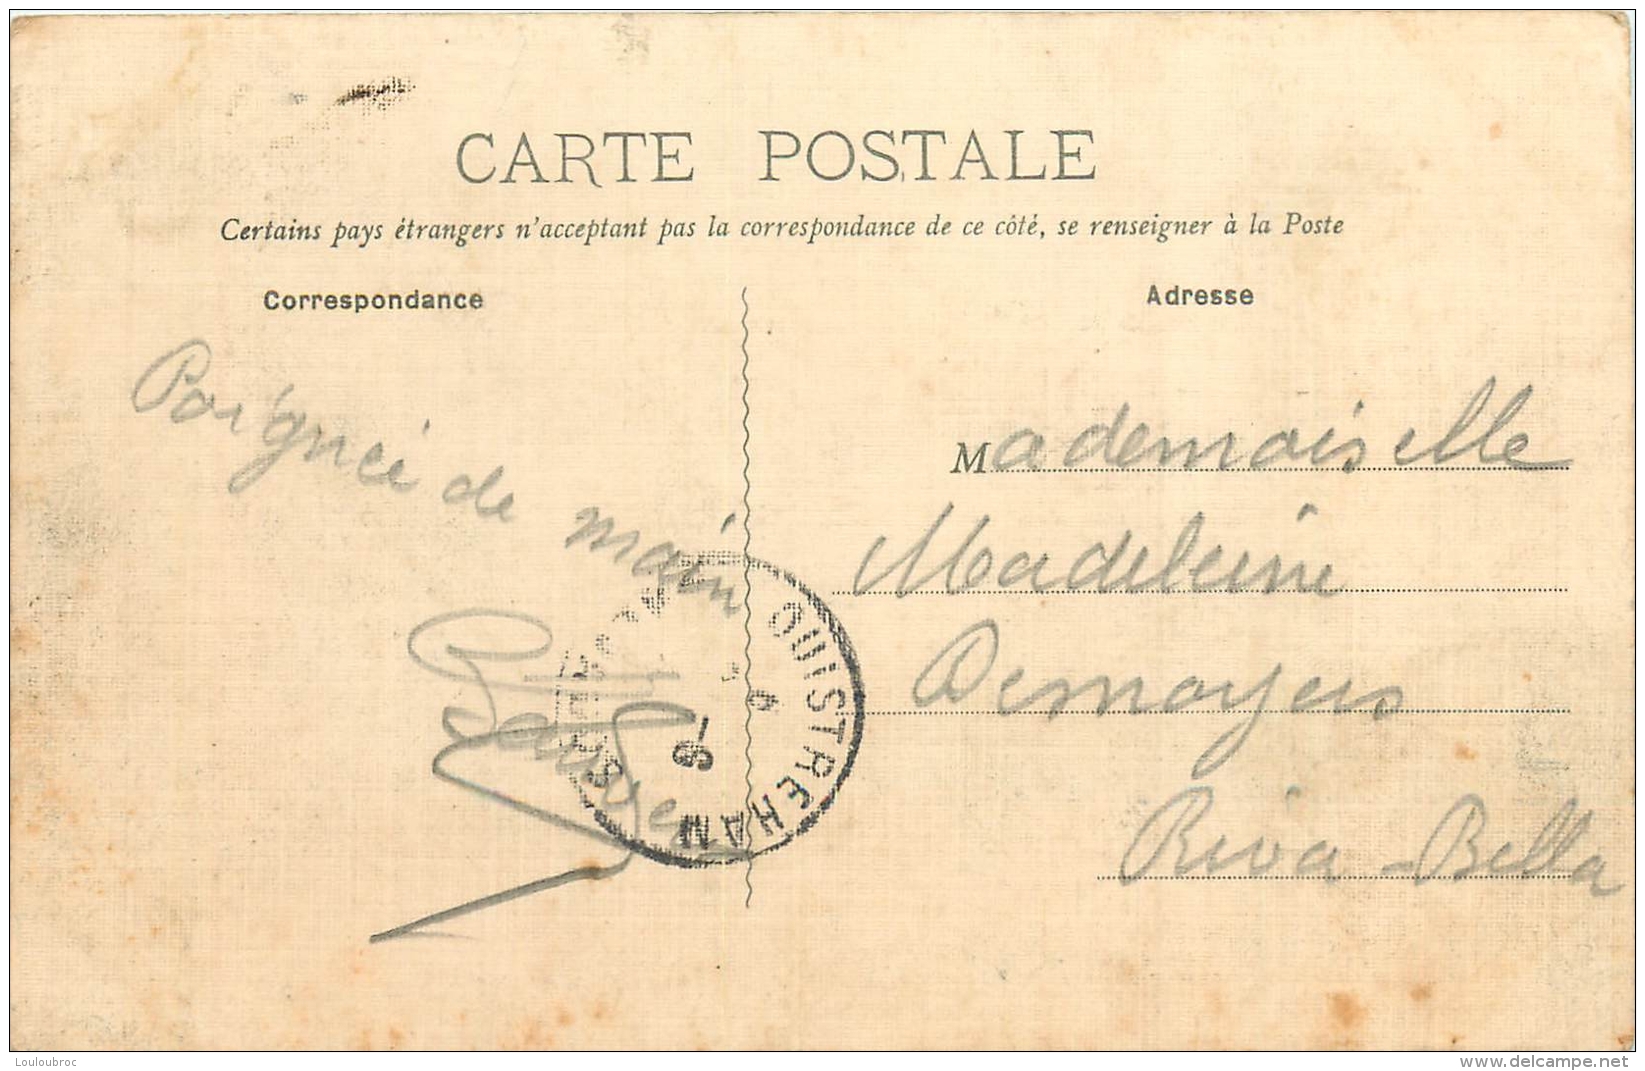 CARTE POSTALE
Certains pays étrangers n'acceptant pas la correspondance de ce côté, se renseigner à la Poste
Correspondance
Adresse
Poignée de main
Mademoiselle
Madeleine
Demoyers
Riva-Bella
OUISTREHAM
Louloubroc
www.delcampe.net